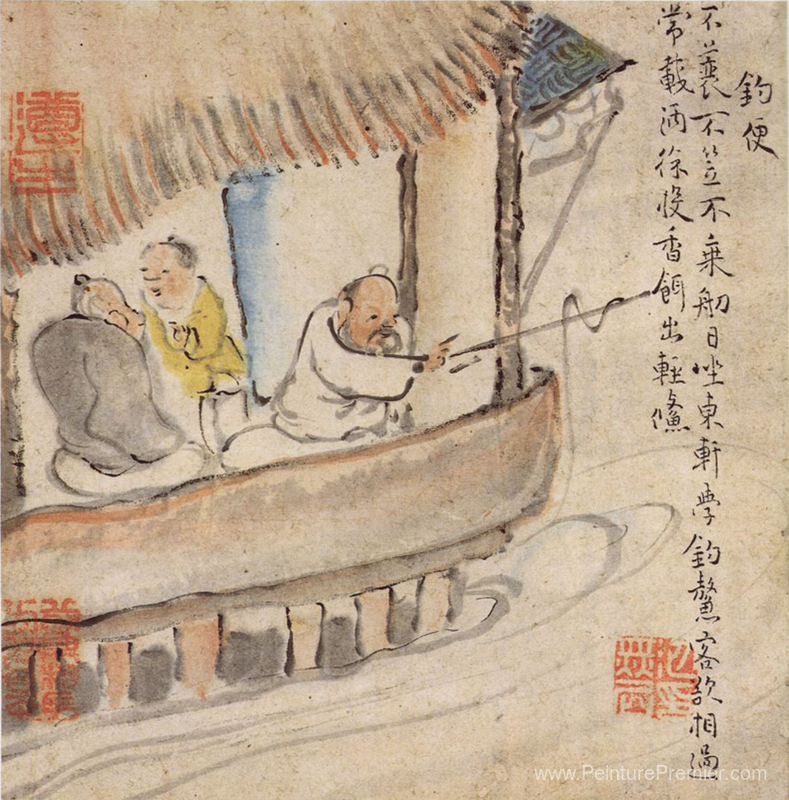 釣便
不蓑不笠不乘舠日坐東軒學釣鰲客欲相過
常載酒徐投香餌出輕鯈
www.PeinturePremier.com